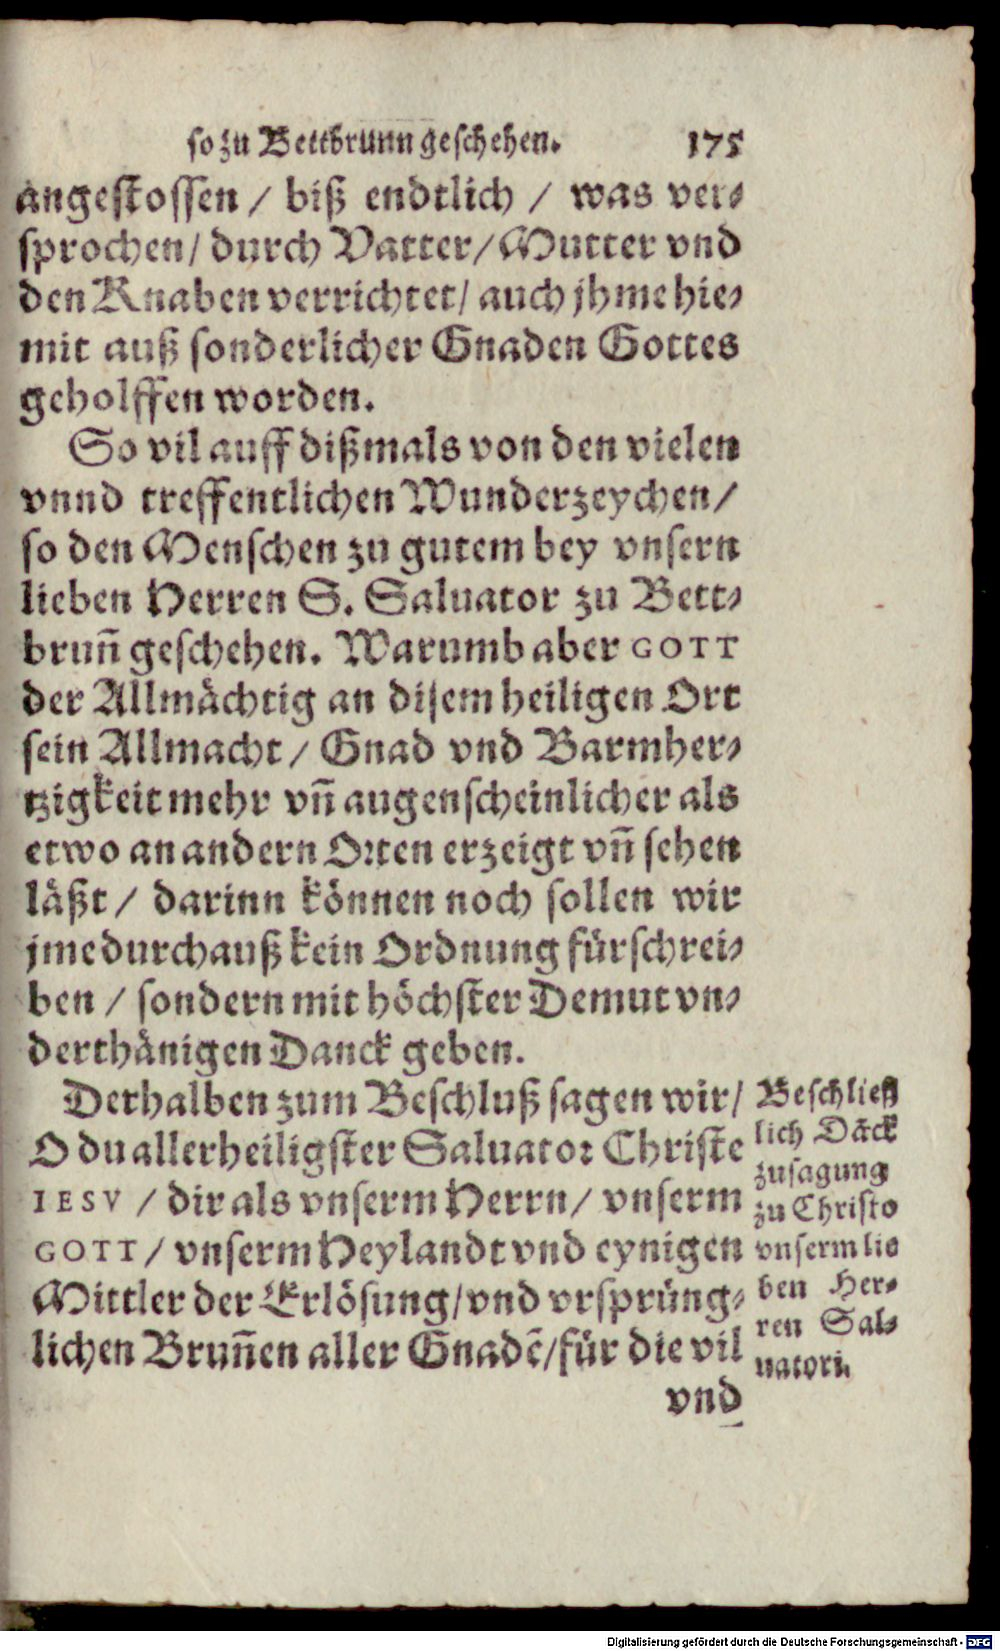 so zu Bettbrunn geschehen. 175
angestossen / biß endtlich / was ver-
sprochen / durch Vatter / Mutter vnd
den Knaben verrichtet / auch jhme hie-
mit auß sonderlicher Gnaden Gottes
geholffen worden.
So vil auff dißmals von den vielen
vnnd treffentlichen Wunderzeychen /
so den Menschen zu gutem bey vnsern
lieben Herren S. Saluator zu Bett-
brun̄ geschehen. Warumb aber GOTT
der Allmächtig an disem heiligen Ort
sein Allmacht / Gnad vnd Barmher-
tzigkeit mehr vn̄ augenscheinlicher als
etwo an andern Orten erzeigt vn̄ sehen
läßt / darinn können noch sollen wir
jme durchauß kein Ordnung fürschrei-
ben / sondern mit höchster Demut vn-
derthänigen Danck geben.
Derhalben zum Beschluß sagen wir /
O du allerheiligster Saluator Christe
IESV / dir als vnserm Herrn / vnserm
GOTT / vnserm Heylandt vnd eynigen
Mittler der Erlösung / vnd vrsprüng-
lichen Brun̄en aller Gnadē / für die vil
vnd
Beschließ
lich Dāck
zusagung
zu Christo
vnserm lie
ben Her-
ren Sal-
uatori.
Digitalisierung gefördert durch die Deutsche Forschungsgemeinschaft - DFG